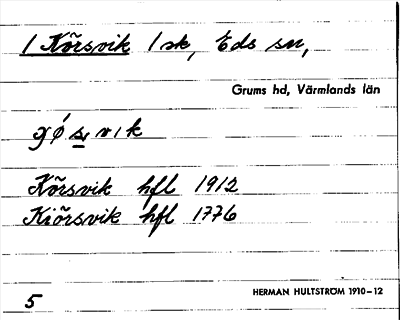 1 Kõrsvik 1 sk, Eds sn,
Grums hd, Värmlands län
Kõrsvik hfl 1912
Kiõrsvik hfl 1776
HERMAN HULTSTRÖM 1910–12
5